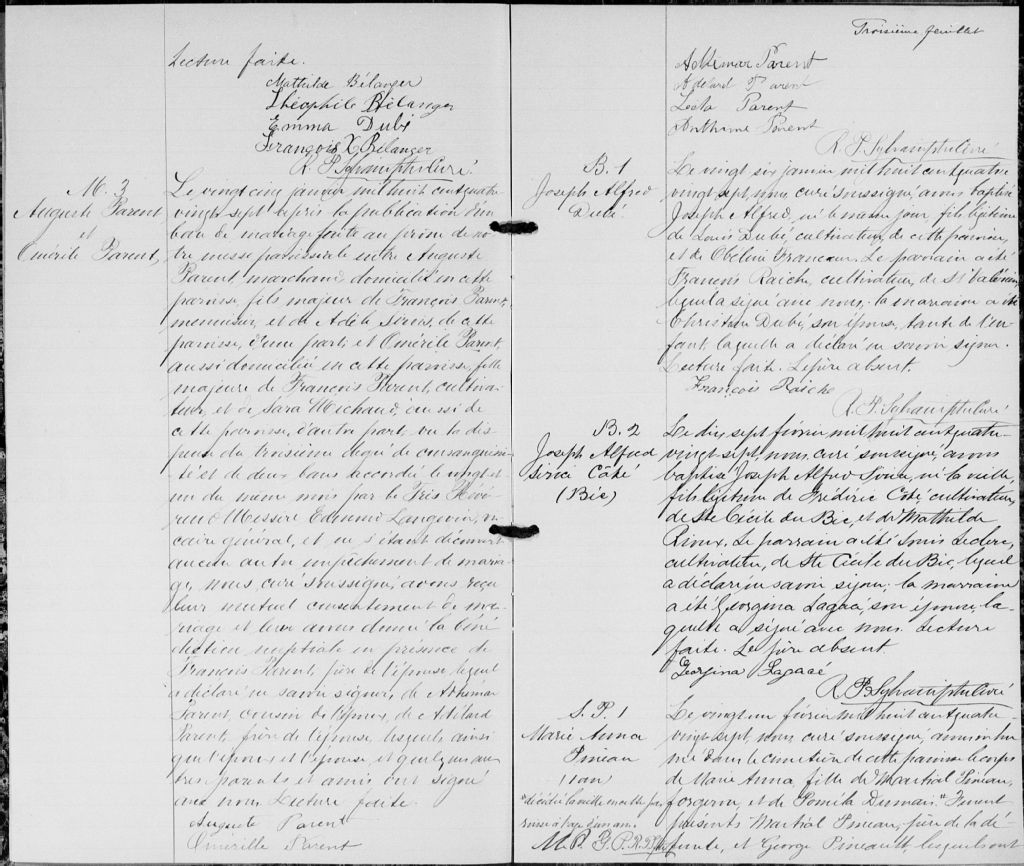 Lecture faite.
Mathilde Bélanger
Théophile Bélanger
Emma Dubé
François X Bélanger
R. P. Sylvain ptre curé.
M. 3
Auguste Parent
et
Omérile Parent,
Le vingt cinq janvier mil huit cent quatre
vingt sept après la publication d'un
ban de mariage faite au prône de no-
tre messe paroissiale entre Auguste
Parent, marchand domicilié en cette
paroisse, fils majeur de François Parent,
menuisier, et de Adèle de cette
paroisse, d'une part; et Omérile Parent,
aussi domiciliée en cette paroisse, fille
majeure de François Parent, cultiva-
teur, et de Sara Michaud, aussi de
cette paroisse, d'autre part, vu la dis-
pense du troisième degré de consanguini-
té et de deux bans accordée le vingt et
un du même mois par le Très Révé-
rend Messire Edmond Langevin, vi-
caire général, et ne s'étant découvert
aucun autre empêchement de maria-
ge, nous, curé soussigné, avons reçu
leur mutuel consentement de ma-
riage et leur avons donné la béné
diction nuptiale en présence de
François Parent, père de l'épouse, lequel
a déclaré ne savoir signer, de Adhémar
Parent, cousin de l'époux, de Adélard
Parent, frère de l'épouse, lesquels ainsi
que l'époux et l'épouse et quelques au-
tres parents et amis ont signé
avec nous. Lecture faite.
Auguste Parent
Omérille Parent
Troisième feuillet
Adhémar Parent
Adélard Parent
Leda Parent
Anthime Parent
R. P. Sylvain ptre curé
B. 1
Joseph Alfred
Dubé
Le vingt six janvier mil huit cent quatre
vingt sept, nous curé soussigné, avons baptisé
Joseph Alfred, né le même jour, fils légitime
de Louis Dubé, cultivateur, de cette paroisse,
et de Obeline Francoeur. Le parrain a été
François Raiche, cultivateur, de St Valérien,
lequel a signé avec nous; la marraine a été
Christine Dubé, son épouse, tante de l'en-
fant, laquelle a déclaré ne savoir signer.
Lecture faite. Le père absent.
François Raiche
R. P. Sylvain ptre curé
B. 2
Joseph Alfred
Siroi Côté
(Bic)
Le dix sept février mil huit cent quatre-
vingt sept, nous, curé soussigné, avons
baptisé Joseph Alfred né la veille,
fils légitime de Frédéric Côté, cultivateur,
de Ste Cécile du Bic, et de Mathilde
Rioux. Le parrain a été Louis Leclerc,
cultivateur, de Ste Cécile du Bic, lequel
a déclaré ne savoir signer; la marraine
a été Georgina Lagacé, son épouse, la-
quelle a signé avec nous. Lecture
faite. Le père absent.
Georgina Lagacé
R. P. Sylvain ptre curé
S. P. 1
Marie Anna
Pineau
1 an
*décédée la veille en cette pa-
roisse à l'age d'un an.
Le vingt un février mil huit cent quatre-
vingt sept, nous curé soussigné, avons inhu
mé dans le cimetière de cette paroisse le corps
de Marie Anna, fille de Martial Pineau,
forgeron, et de Pamila Dumais.* Furent
présents Martial Pineau, père de la dé
funte, et George Pineault lesquels ont